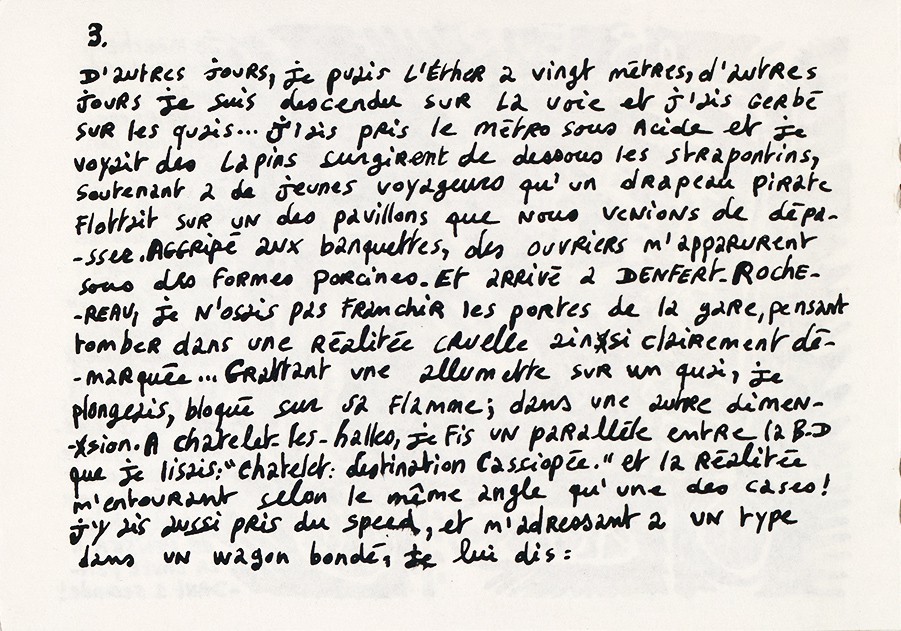 3.
D'autres jours, je puais l'Éther a vingt mètres, d'autres
jours je suis descendu sur la voie et j'ais gerbé
sur les quais... j'ais pris le métro sous acide et je
voyait des lapins surgirent de dessous les strapontins,
soutenant a de jeunes voyageurs qu'un drapeau pirate
flottait sur un des pavillons que nous venions de dépa-
-sser. Aggripé aux banquettes, des ouvriers m'apparurent
sous des formes porcines. Et arrivé a DENFERT-ROCHE-
-REAU, je n'osais pas franchir les portes de la gare, pensant
tomber dans une réalitée cruelle ainsi clairement dé-
-marquée... Grattant une allumette sur un quai, je
plongeais, bloqué sur sa flamme; dans une autre dimen-
-sion. A chatelet-les-halles, je fis un parallèle entre la B-D
que je lisais: "Chatelet: destination Cassiopée." et la réalitée
m'entourant selon le même angle qu'une des cases!
j'y ais aussi pris du speed, et m'adressant a un type
dans un wagon bondé, je lui dis: